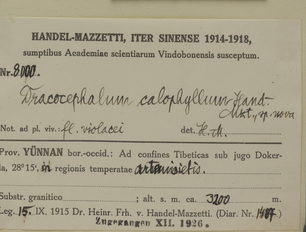 HANDEL-MAZZETTI, ITER SINENSE 1914-1918,
sumptibus Academiae scientiarum Vindobonensis susceptum.
Nr. 8100.
Dracocephalum calophyllum Hand.-
Mzt., sp. nova
Not. ad pl. viv.: fl. violacei det. H. M.
Prov. YÜNNAN bor.-occid.: Ad confines Tibeticas sub jugo Doker-
la, 28°15', in regionis temperatae
Substr. granitico ; alt. s. m. ca. 3200 m.
Leg. 15. IX. 1915 Dr. Heinr. Frh. v. Handel-Mazzetti. (Diar. Nr.
Zugegangen XII. 1926.